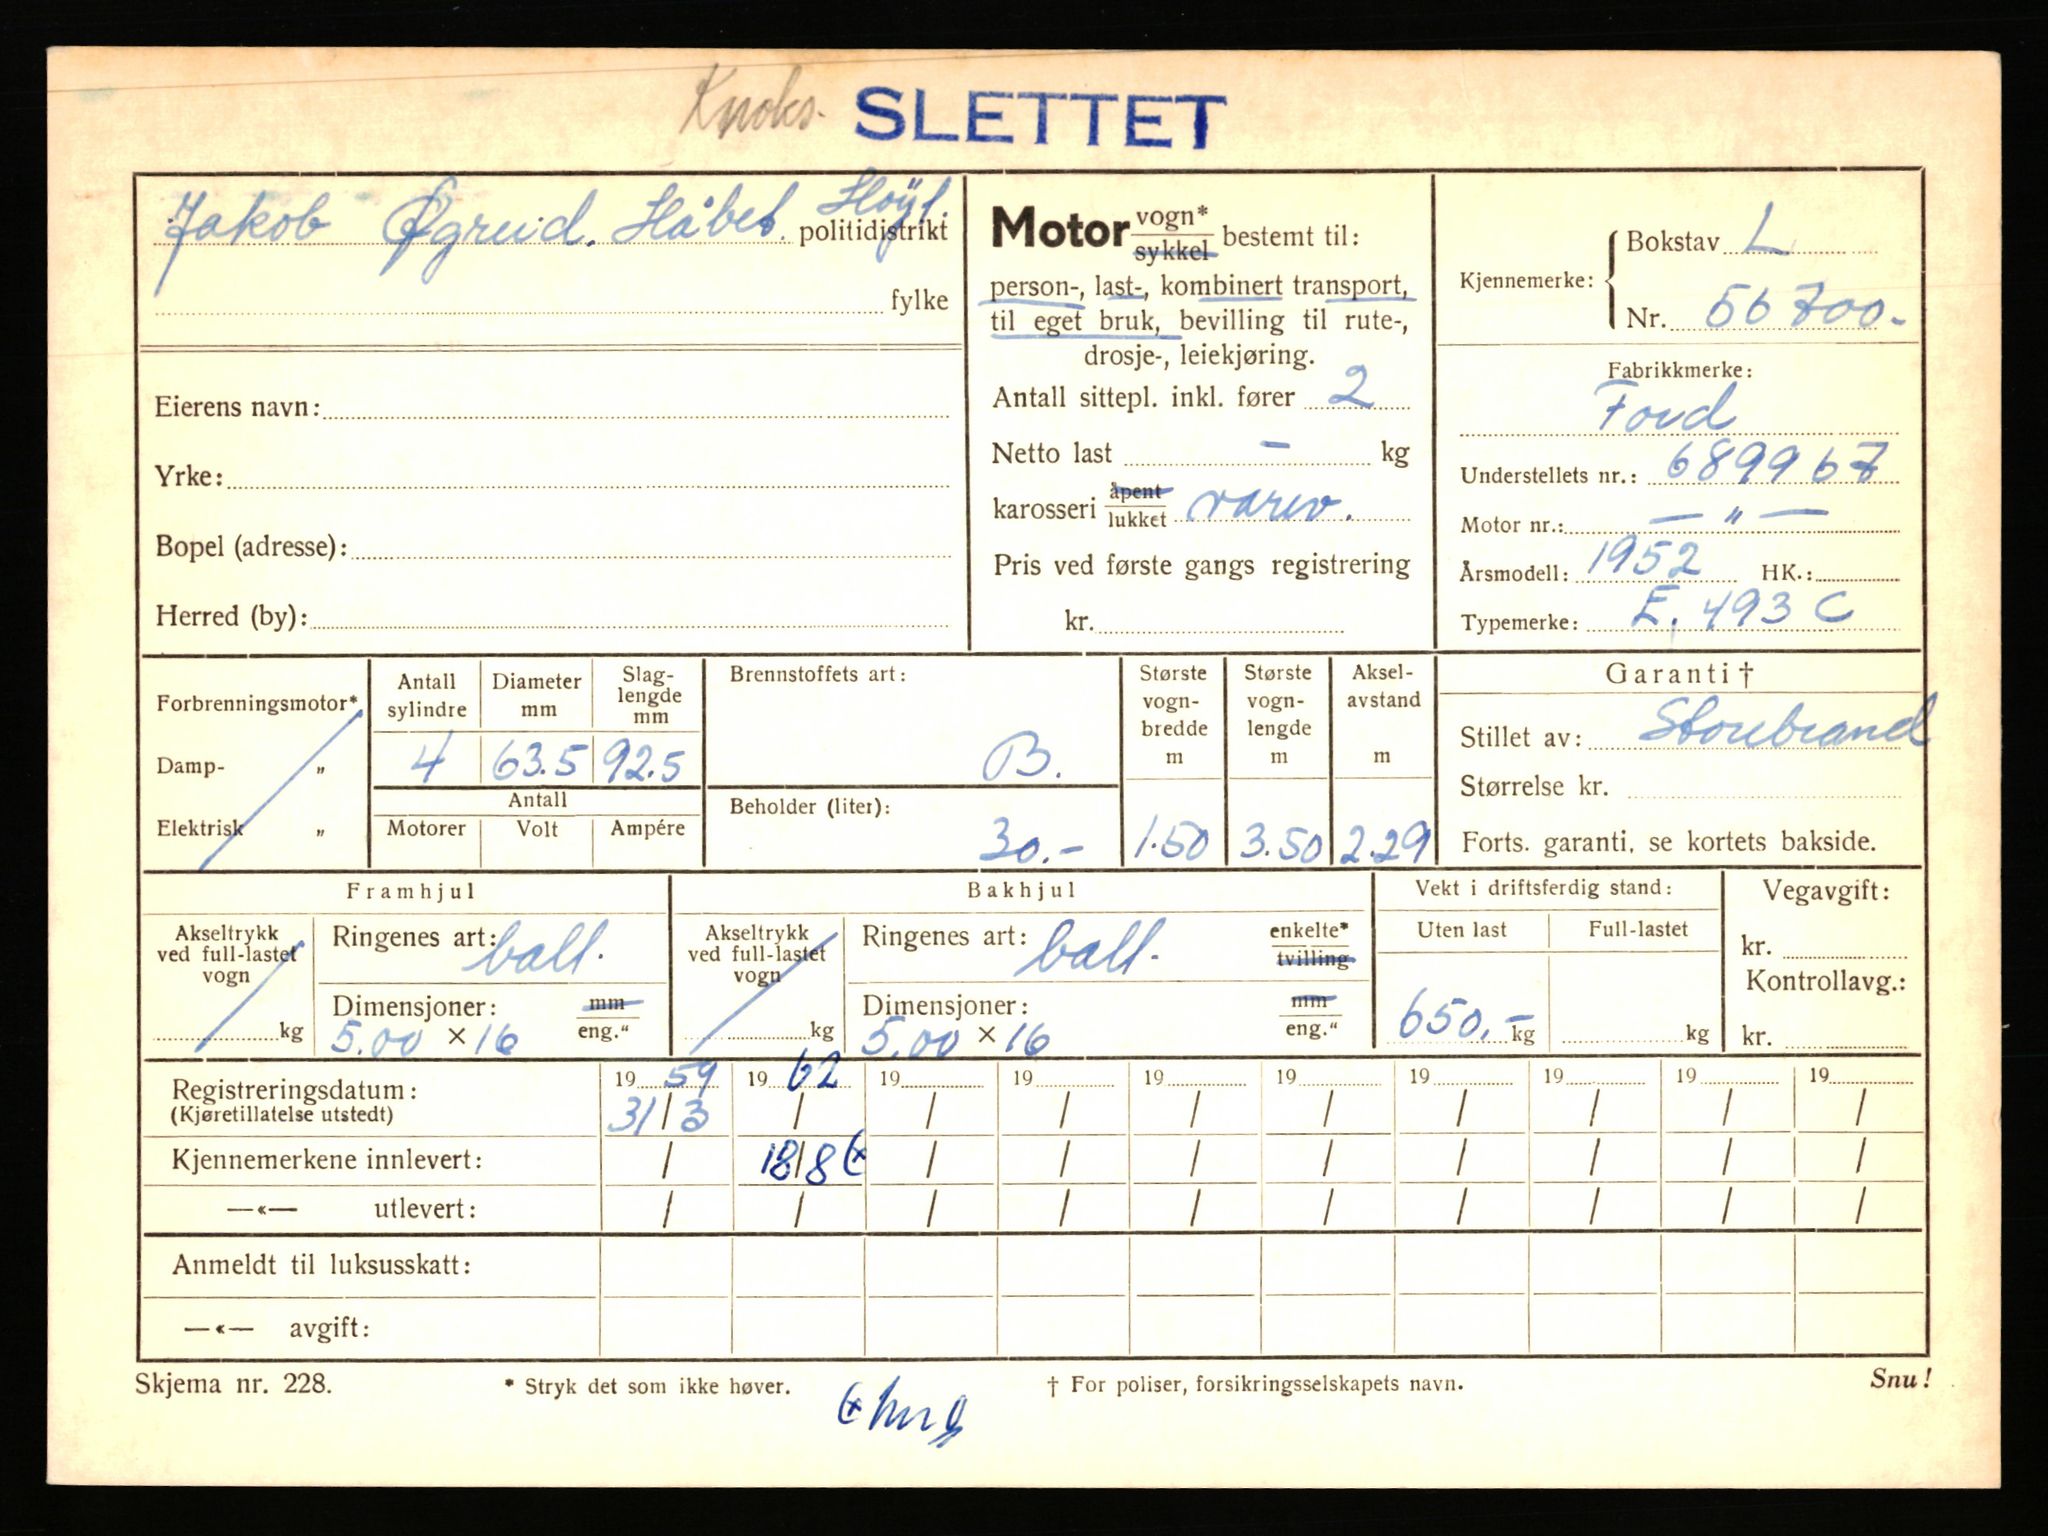 Knoks. SLETTET
Jakob Øgreid. Håbet. Høyl. politidistrikt
fylke
Eierens navn:
Yrke:
Bopel (adresse):
Herred (by):
Motor vogn* / sykkel bestemt til:
person-, last-, kombinert transport,
til eget bruk, bevilling til rute-,
drosje-, leiekjøring.
Antall sittepl. inkl. fører 2
Netto last – kg
karosseri åpent / lukket varev.
Pris ved første gangs registrering
kr.
Kjennemerke: Bokstav L
Nr. 56700.-
Fabrikkmerke:
Ford
Understellets nr.: 689967
Motor nr.: — " —
Årsmodell: 1952 HK.:
Typemerke: E. 493 C
Forbrenningsmotor*
Damp- „
Elektrisk „
Antall sylindre 4
Diameter mm 63.5
Slag-lengde mm 92.5
Antall
Motorer Volt Ampére
Brennstoffets art:
B.
Beholder (liter):
30.-
Største vogn-bredde m 1.50
Største vogn-lengde m 3.50
Aksel-avstand m 2.29
Garanti †
Stillet av: Storebrand
Størrelse kr.
Forts. garanti, se kortets bakside.
Framhjul
Akseltrykk ved full-lastet vogn kg
Ringenes art: ball.
Dimensjoner: mm / eng."
5.00 × 16
Bakhjul
Akseltrykk ved full-lastet vogn kg
Ringenes art: ball. enkelte* / tvilling
Dimensjoner: mm / eng."
5.00 × 16
Vekt i driftsferdig stand:
Uten last Full-lastet
650.- kg kg
Vegavgift:
kr.
Kontrollavg.:
kr.
Registreringsdatum: 19 59 19 62 19 19 19 19 19 19 19 19
(Kjøretillatelse utstedt) 31/3 / / / / / / / / /
Kjennemerkene innlevert: / 18/8 (x / / / / / / / /
—«— utlevert: / / / / / / / / / /
Anmeldt til luksusskatt:
—«— avgift:
Skjema nr. 228. * Stryk det som ikke høver. † For poliser, forsikringsselskapets navn. Snu!